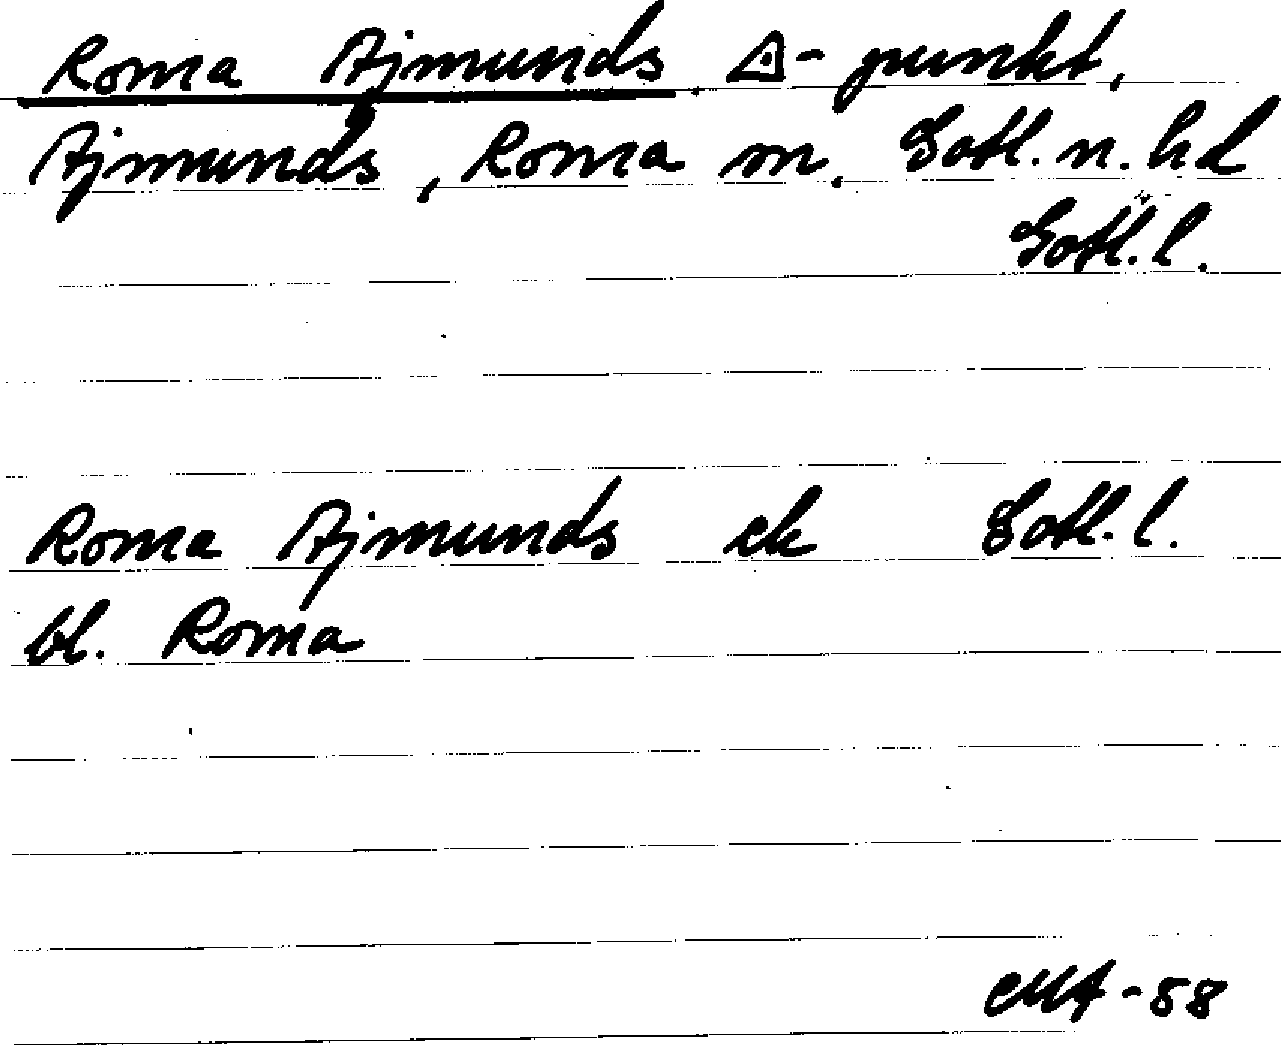 Roma Ajmunds. △-punkt,
Ajmunds, Roma sn. Gotl. n. hd
Gotl. l.
Roma Ajmunds ek Gotl. l.
bl. Roma
-58